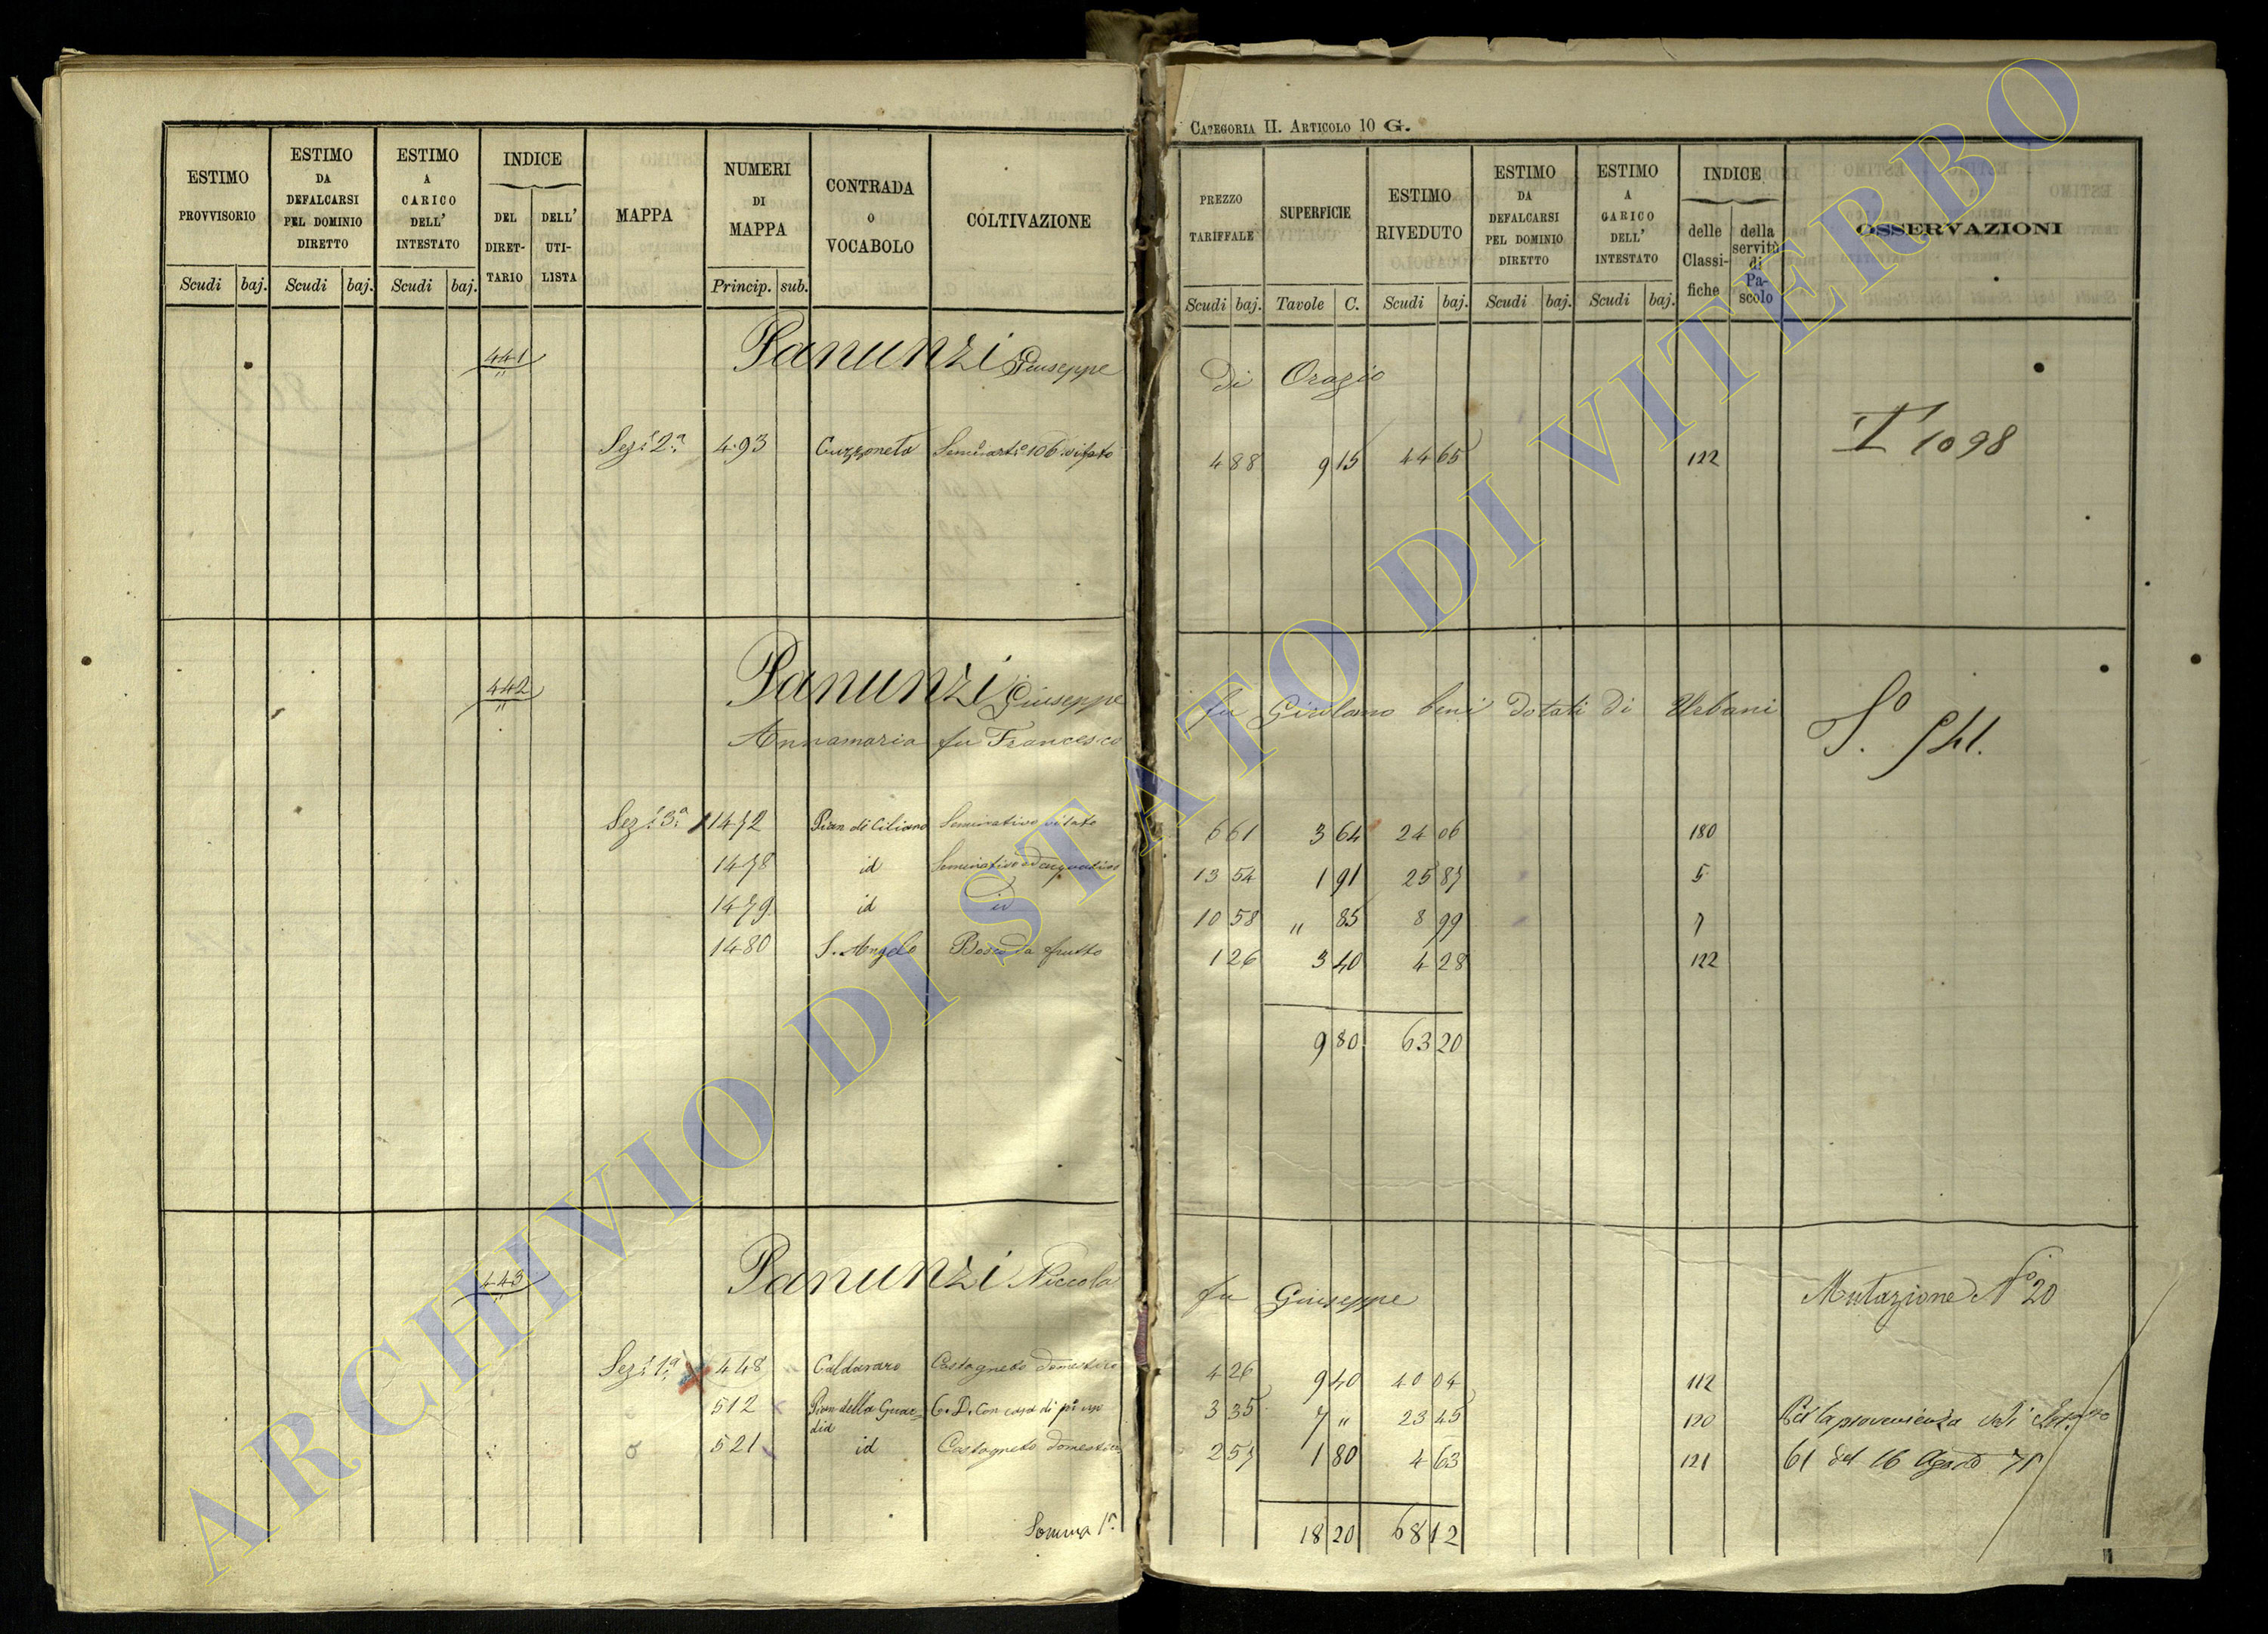 CATEGORIA II. ARTICOLO 10 G.
ESTIMO PROVVISORIO Scudi baj.
ESTIMO DA DEFALCARSI PEL DOMINIO DIRETTO Scudi baj.
ESTIMO A CARICO DELL' INTESTATO Scudi baj.
INDICE DEL DIRETTARIO DELL' UTILISTA
MAPPA
NUMERI DI MAPPA Princip. sub.
CONTRADA O VOCABOLO
COLTIVAZIONE
PREZZO TARIFFALE Scudi baj.
SUPERFICIE Tavole C.
ESTIMO RIVEDUTO Scudi baj.
ESTIMO DA DEFALCARSI PEL DOMINIO DIRETTO Scudi baj.
ESTIMO A CARICO DELL' INTESTATO Scudi baj.
INDICE delle Classifiche della servitù di Pascolo
OSSERVAZIONI
441 Panunzi Giuseppe di Orazio
Sez.e 2.a 493 Cuzzoneto 4 88 9 15 44 65 122 T 1098
442 Panunzi Giuseppe fu Girolamo beni dotali di Urbani
Annamaria fu Francesco
Sez.e 3.a 1472 Pian di Ciliano Seminativo vitato 6 61 3 64 24 06 180
1478 id Seminativo adacquativo 13 54 1 91 25 87 5
1479 id id 10 58 " 85 8 99 7
1480 S. Angelo Bosco da frutto 1 26 3 40 4 28 122
9 80 63 20
443 Panunzi Niccola fu Giuseppe Mutazione N° 20
Sez.e 1.a 448 Caldararo Castagneto domestico 4 26 9 40 40 04 112
512 Pian della Guardia C. D. con casa di p.o uso 3 35 7 " 23 45 120 Per la provenienza
521 id Castagneto domestico 2 57 1 80 4 63 121 61 del 16 Agosto 71
Somma 1.a 18 20 68 12
ARCHIVIO DI STATO DI VITERBO